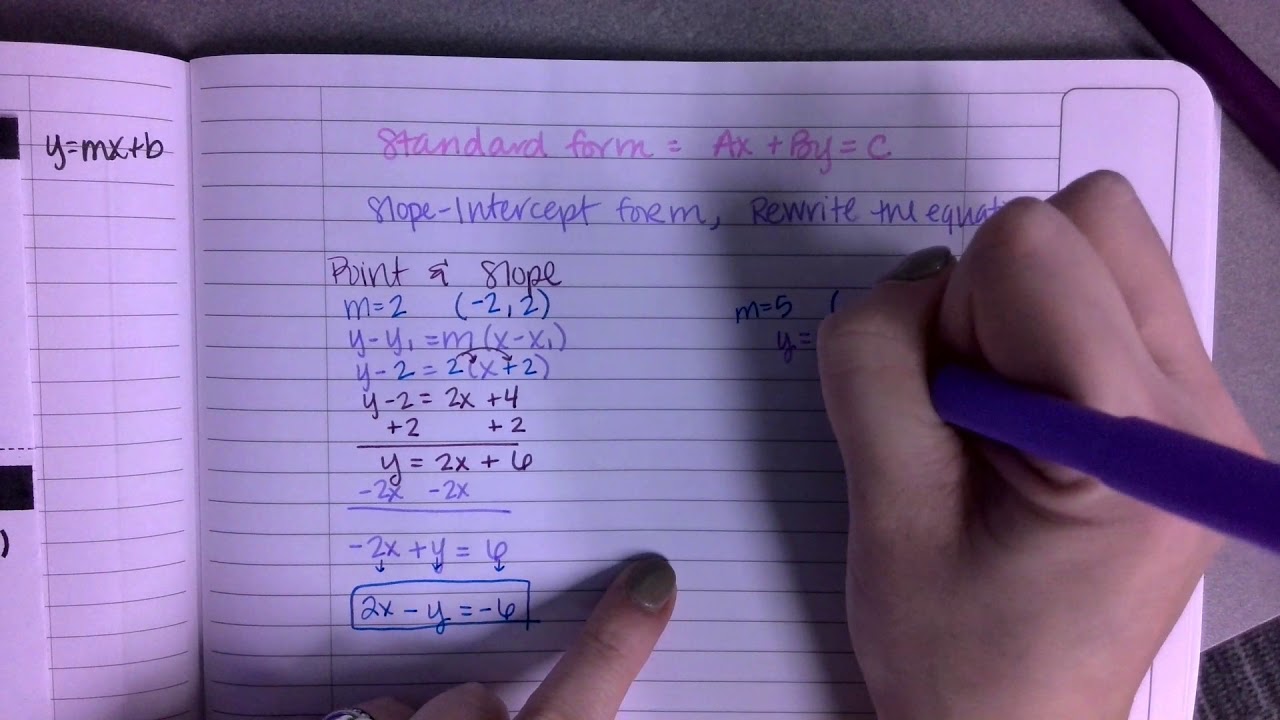 y=mx+b
Standard form = Ax + By = C
Slope-Intercept form, Rewrite the
Point & Slope
m=2 (-2, 2)
y-y₁ = m(x-x₁)
y-2 = 2(x+2)
y-2 = 2x +4
+2 +2
y = 2x + 6
-2x -2x
-2x + y = 6
2x - y = -6
m=5 (
y=
)